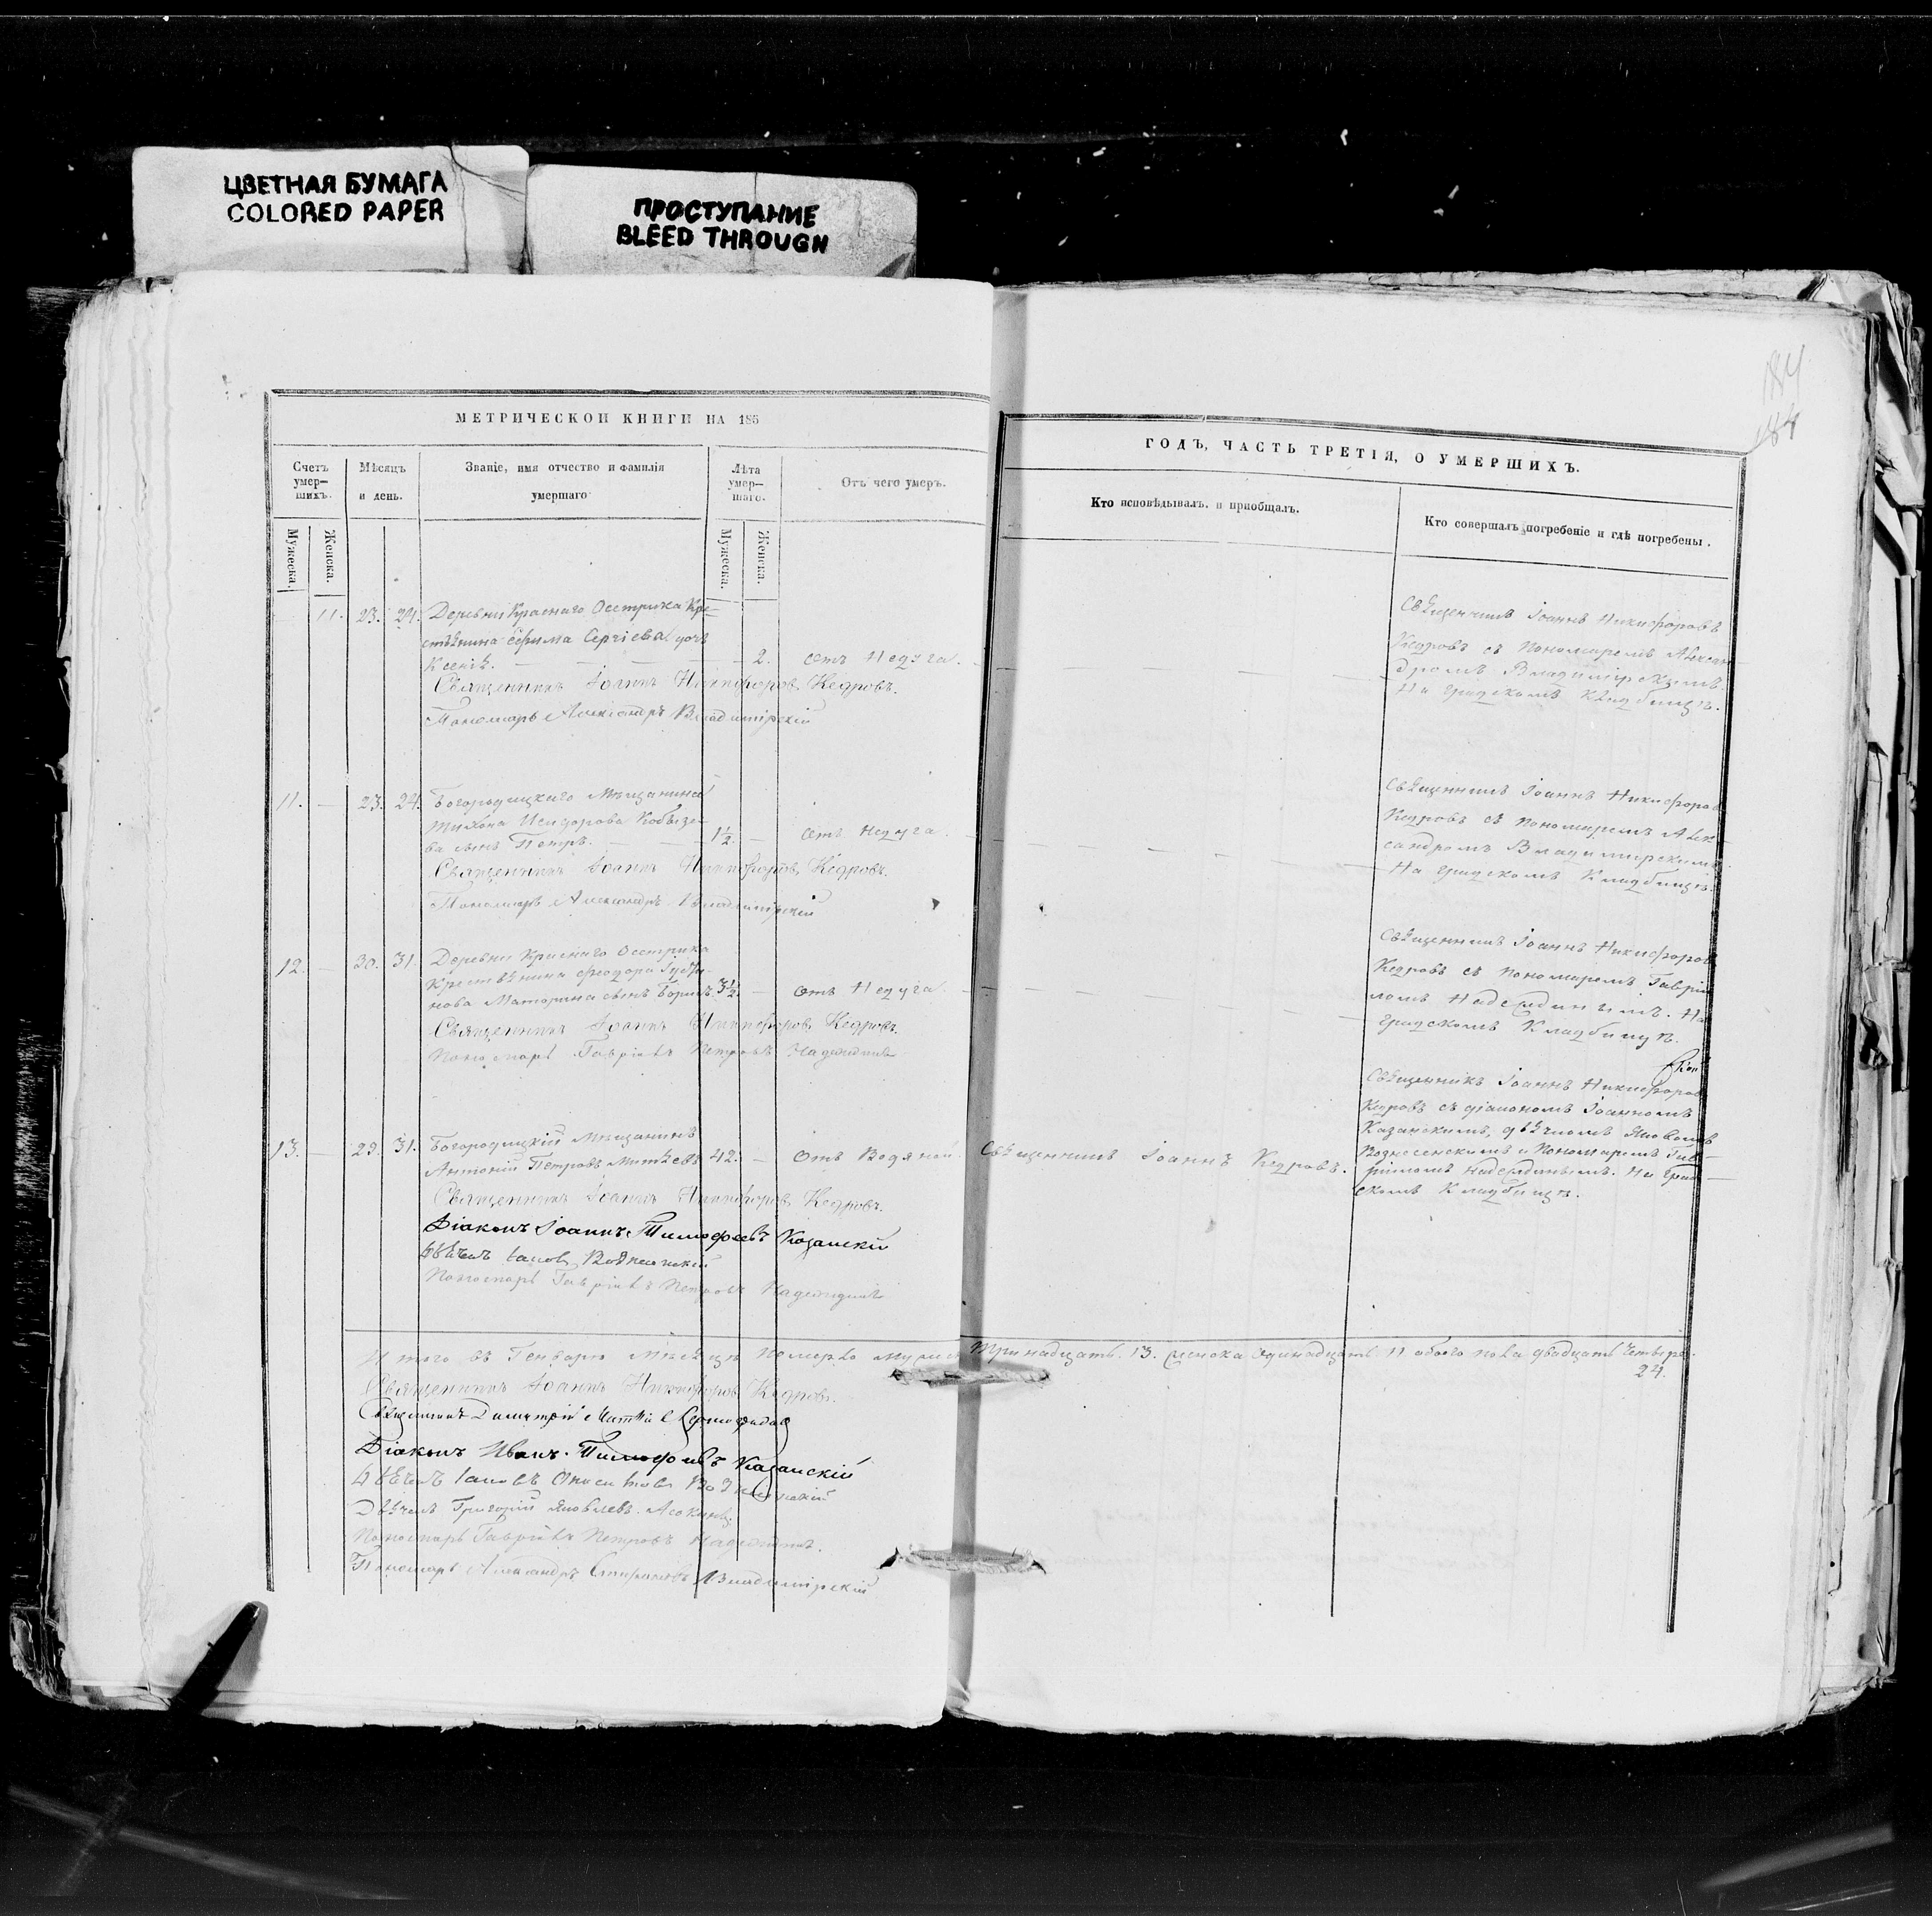 ЦВЕТНАЯ БУМАГА
COLORED PAPER
ПРОСТУПАНИЕ
BLEED THROUGH
184
МЕТРИЧЕСКОЙ КНИГИ НА 185
ГОДЪ, ЧАСТЬ ТРЕТІЯ, О УМЕРШИХЪ.
Счетъ умер-шихъ.
Мѣсяцъ и день.
Званіе, имя отчество и фамилія умершаго
Лѣта умер-шаго.
Отъ чего умеръ.
Кто исповѣдывалъ. и пріобщалъ.
Кто совершалъ погребеніе и гдѣ погребены.
Мужеска.
Женска.
Мужеска.
Женска.
11. 23. 24. Деревни Краснаго Осетрика Кре-
стьянина Ефима Сергіева дочь
Ксенія. 2. отъ Недуга.
Священникъ Іоаннъ Никифоровъ Кедровъ.
Пономарь Александръ Владимірскій
Священникъ Іоаннъ Никифоровъ
Кедровъ съ Пономаремъ Алексан-
дромъ Владимірскимъ.
На градскомъ Кладбищѣ.
11. 23. 24. Богородицкаго Мѣщанина
Тихона Исидорова
сынъ Петръ. 1½ отъ недуга.
Священникъ Іоаннъ Никифоровъ Кедровъ.
Пономарь Александръ Владимірскій
Священникъ Іоаннъ Никифоровъ
Кедровъ съ Пономаремъ Алек-
сандромъ Владимирскимъ
На градскомъ Кладбищѣ.
12. 30. 31. Деревни Краснаго Осетрика
Крестьянина Феодора
сынъ Борисъ. 3½ отъ Недуга.
Священникъ Іоаннъ Никифоровъ Кедровъ.
Пономарь Гавріилъ Петровъ Надеждинъ
Священникъ Іоаннъ Никифоровъ
Кедровъ съ Пономаремъ Гаврі-
иломъ Надеждинымъ. На
градскомъ Кладбищѣ.
13. 29. 31. Богородицкій Мѣщанинъ
Антоній Петровъ 42. отъ Водяной. Священникъ Іоаннъ Кедровъ.
Священникъ Іоаннъ Никифоровъ Кедровъ.
Діаконъ Іоаннъ Тимофеевъ Казанскій
Дьячекъ Іаковъ Вознесенскій
Пономарь Гавріилъ Петровъ Надеждинъ
Священникъ Іоаннъ Никифоровъ
Кедровъ съ діакономъ Іоанномъ
Казанскимъ, дьячкомъ Яковомъ
Вознесенскимъ и Пономаремъ Гав-
ріиломъ Надеждинымъ. На град-
скомъ Кладбищѣ.
Итого въ Генварѣ мѣсяцѣ померло мужеска Тринадцать. 13. женска одинадцать 11 обоего пола двадцать четыре.
24.
Священникъ Іоаннъ Никифоровъ Кедровъ.
Священникъ Димитрій
Діаконъ Иванъ Тимофеевъ Казанскій
Дьячекъ Іаковъ Вознесенскій
Дьячекъ Григорій Яковлевъ
Пономарь Гавріилъ Петровъ Надеждинъ.
Пономарь Александръ Владимірскій